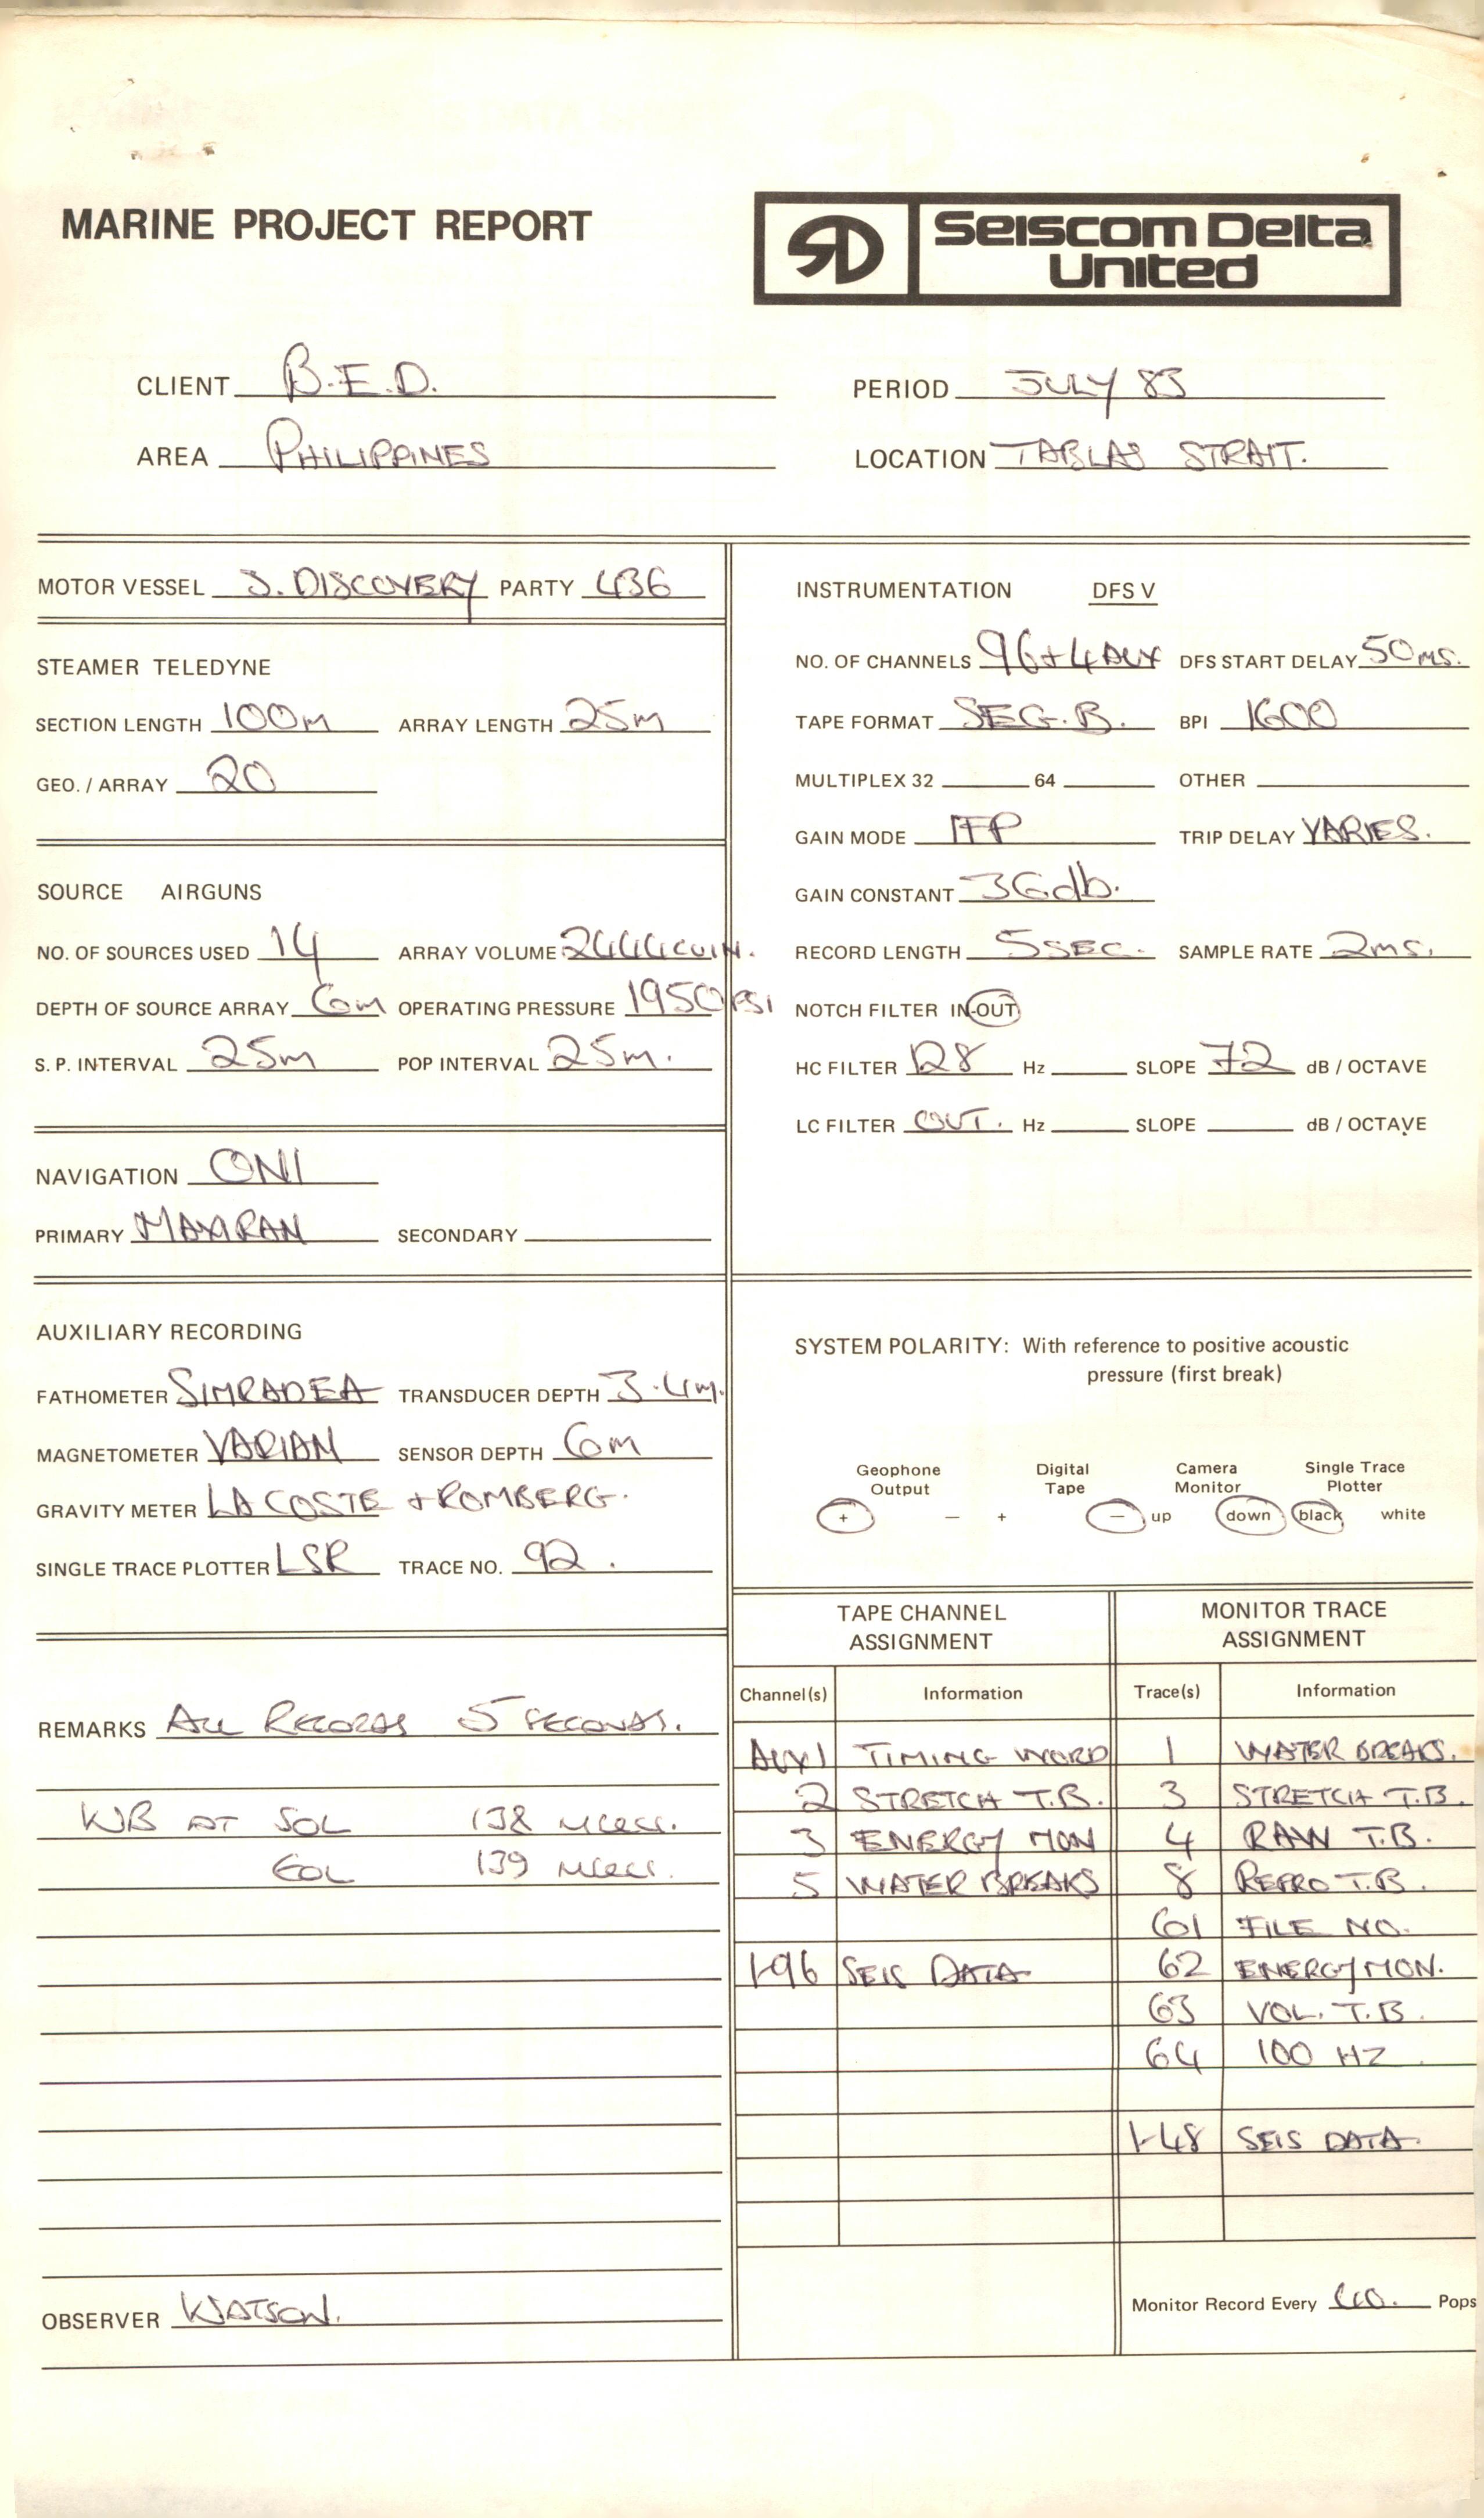 MARINE PROJECT REPORT
SD Seiscom Delta United
CLIENT B.E.D. PERIOD JULY 83
AREA PHILIPPINES LOCATION TABLAS STRAIT.
MOTOR VESSEL S. DISCOVERY PARTY 436
STEAMER TELEDYNE
SECTION LENGTH 100m ARRAY LENGTH 25m
GEO. / ARRAY 20
SOURCE AIRGUNS
NO. OF SOURCES USED 14 ARRAY VOLUME 2444 CU IN.
DEPTH OF SOURCE ARRAY 6m OPERATING PRESSURE 1950 PSI
S. P. INTERVAL 25m POP INTERVAL 25m.
NAVIGATION ONI
PRIMARY MAXIRAN SECONDARY
AUXILIARY RECORDING
FATHOMETER SIMRAD EA TRANSDUCER DEPTH 3.4m.
MAGNETOMETER VARIAN SENSOR DEPTH 6m
GRAVITY METER LA COSTE + ROMBERG.
SINGLE TRACE PLOTTER LSR TRACE NO. 92.
REMARKS ALL RECORDS 5 SECONDS.
WB AT SOL 138 msecs.
EOL 139 msecs.
OBSERVER WATSON.
INSTRUMENTATION DFS V
NO. OF CHANNELS 96+4 AUX DFS START DELAY 50 MS.
TAPE FORMAT SEG.B. BPI 1600
MULTIPLEX 32 64 OTHER
GAIN MODE IFP TRIP DELAY VARIES.
GAIN CONSTANT 36db.
RECORD LENGTH 5 SEC. SAMPLE RATE 2ms.
NOTCH FILTER IN-OUT
HC FILTER 128 Hz SLOPE 72 dB / OCTAVE
LC FILTER OUT. Hz SLOPE dB / OCTAVE
SYSTEM POLARITY: With reference to positive acoustic
pressure (first break)
Geophone Output Digital Tape Camera Monitor Single Trace Plotter
+ − + − up down black white
TAPE CHANNEL ASSIGNMENT MONITOR TRACE ASSIGNMENT
Channel(s) Information Trace(s) Information
AUX1 TIMING WORD 1 WATER BREAKS.
2 STRETCH T.B. 3 STRETCH T.B.
3 ENERGY MON 4 RAW T.B.
5 WATER BREAKS 8 REFRO T.B.
61 FILE NO.
1-96 SEIS DATA 62 ENERGY MON.
63 VOL. T.B.
64 100 HZ
1-48 SEIS DATA
Monitor Record Every Pops